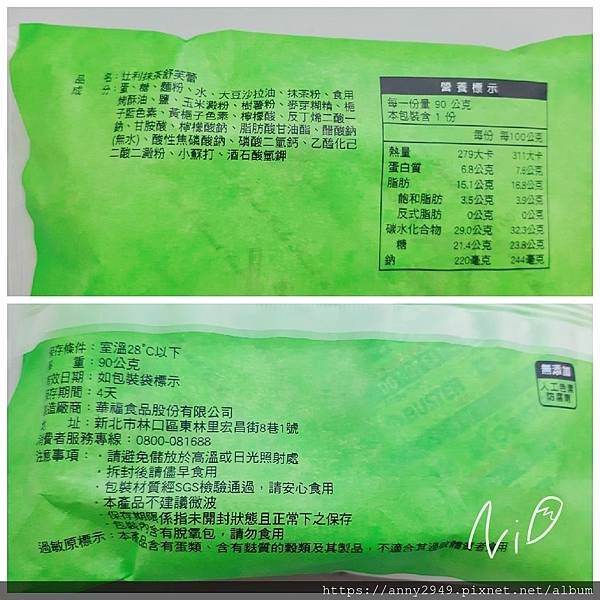 品　名：壯利抹茶舒芙蕾
成　分：蛋、糖、麵粉、水、大豆沙拉油、抹茶粉、食用
烤酥油、鹽、玉米澱粉、樹薯粉、麥芽糊精、梔
子藍色素、黃梔子色素、檸檬酸、反丁烯二酸一
鈉、甘胺酸、檸檬酸鈉、脂肪酸甘油酯、醋酸鈉
(無水)、酸性焦磷酸鈉、磷酸二氫鈣、乙醯化己
二酸二澱粉、小蘇打、酒石酸氫鉀
營養標示
每一份量 90 公克
本包裝含 1 份
每份 每100公克
熱量 279大卡 311大卡
蛋白質 6.8公克 7.6公克
脂肪 15.1公克 16.8公克
飽和脂肪 3.5公克 3.9公克
反式脂肪 0公克 0公克
碳水化合物 29.0公克 32.3公克
糖 21.4公克 23.8公克
鈉 220毫克 244毫克
保存條件：室溫28°C以下
重：90公克
有效日期：如包裝袋標示
保存期間：4天
製造廠商：華福食品股份有限公司
地　址：新北市林口區東林里宏昌街8巷1號
消費者服務專線：0800-081688
注意事項：．請避免儲放於高溫或日光照射處
．拆封後請儘早食用
．包裝材質經SGS檢驗通過，請安心食用
．本產品不建議微波
．保存期限係指未開封狀態且正常下之保存
．包裝內含有脫氧包，請勿食用
過敏原標示：本產品含有蛋類、含有麩質的穀類及其製品，不適合其過敏體質者食用
無添加
人工色素
防腐劑
ViD
https://anny2949.pixnet.net/album